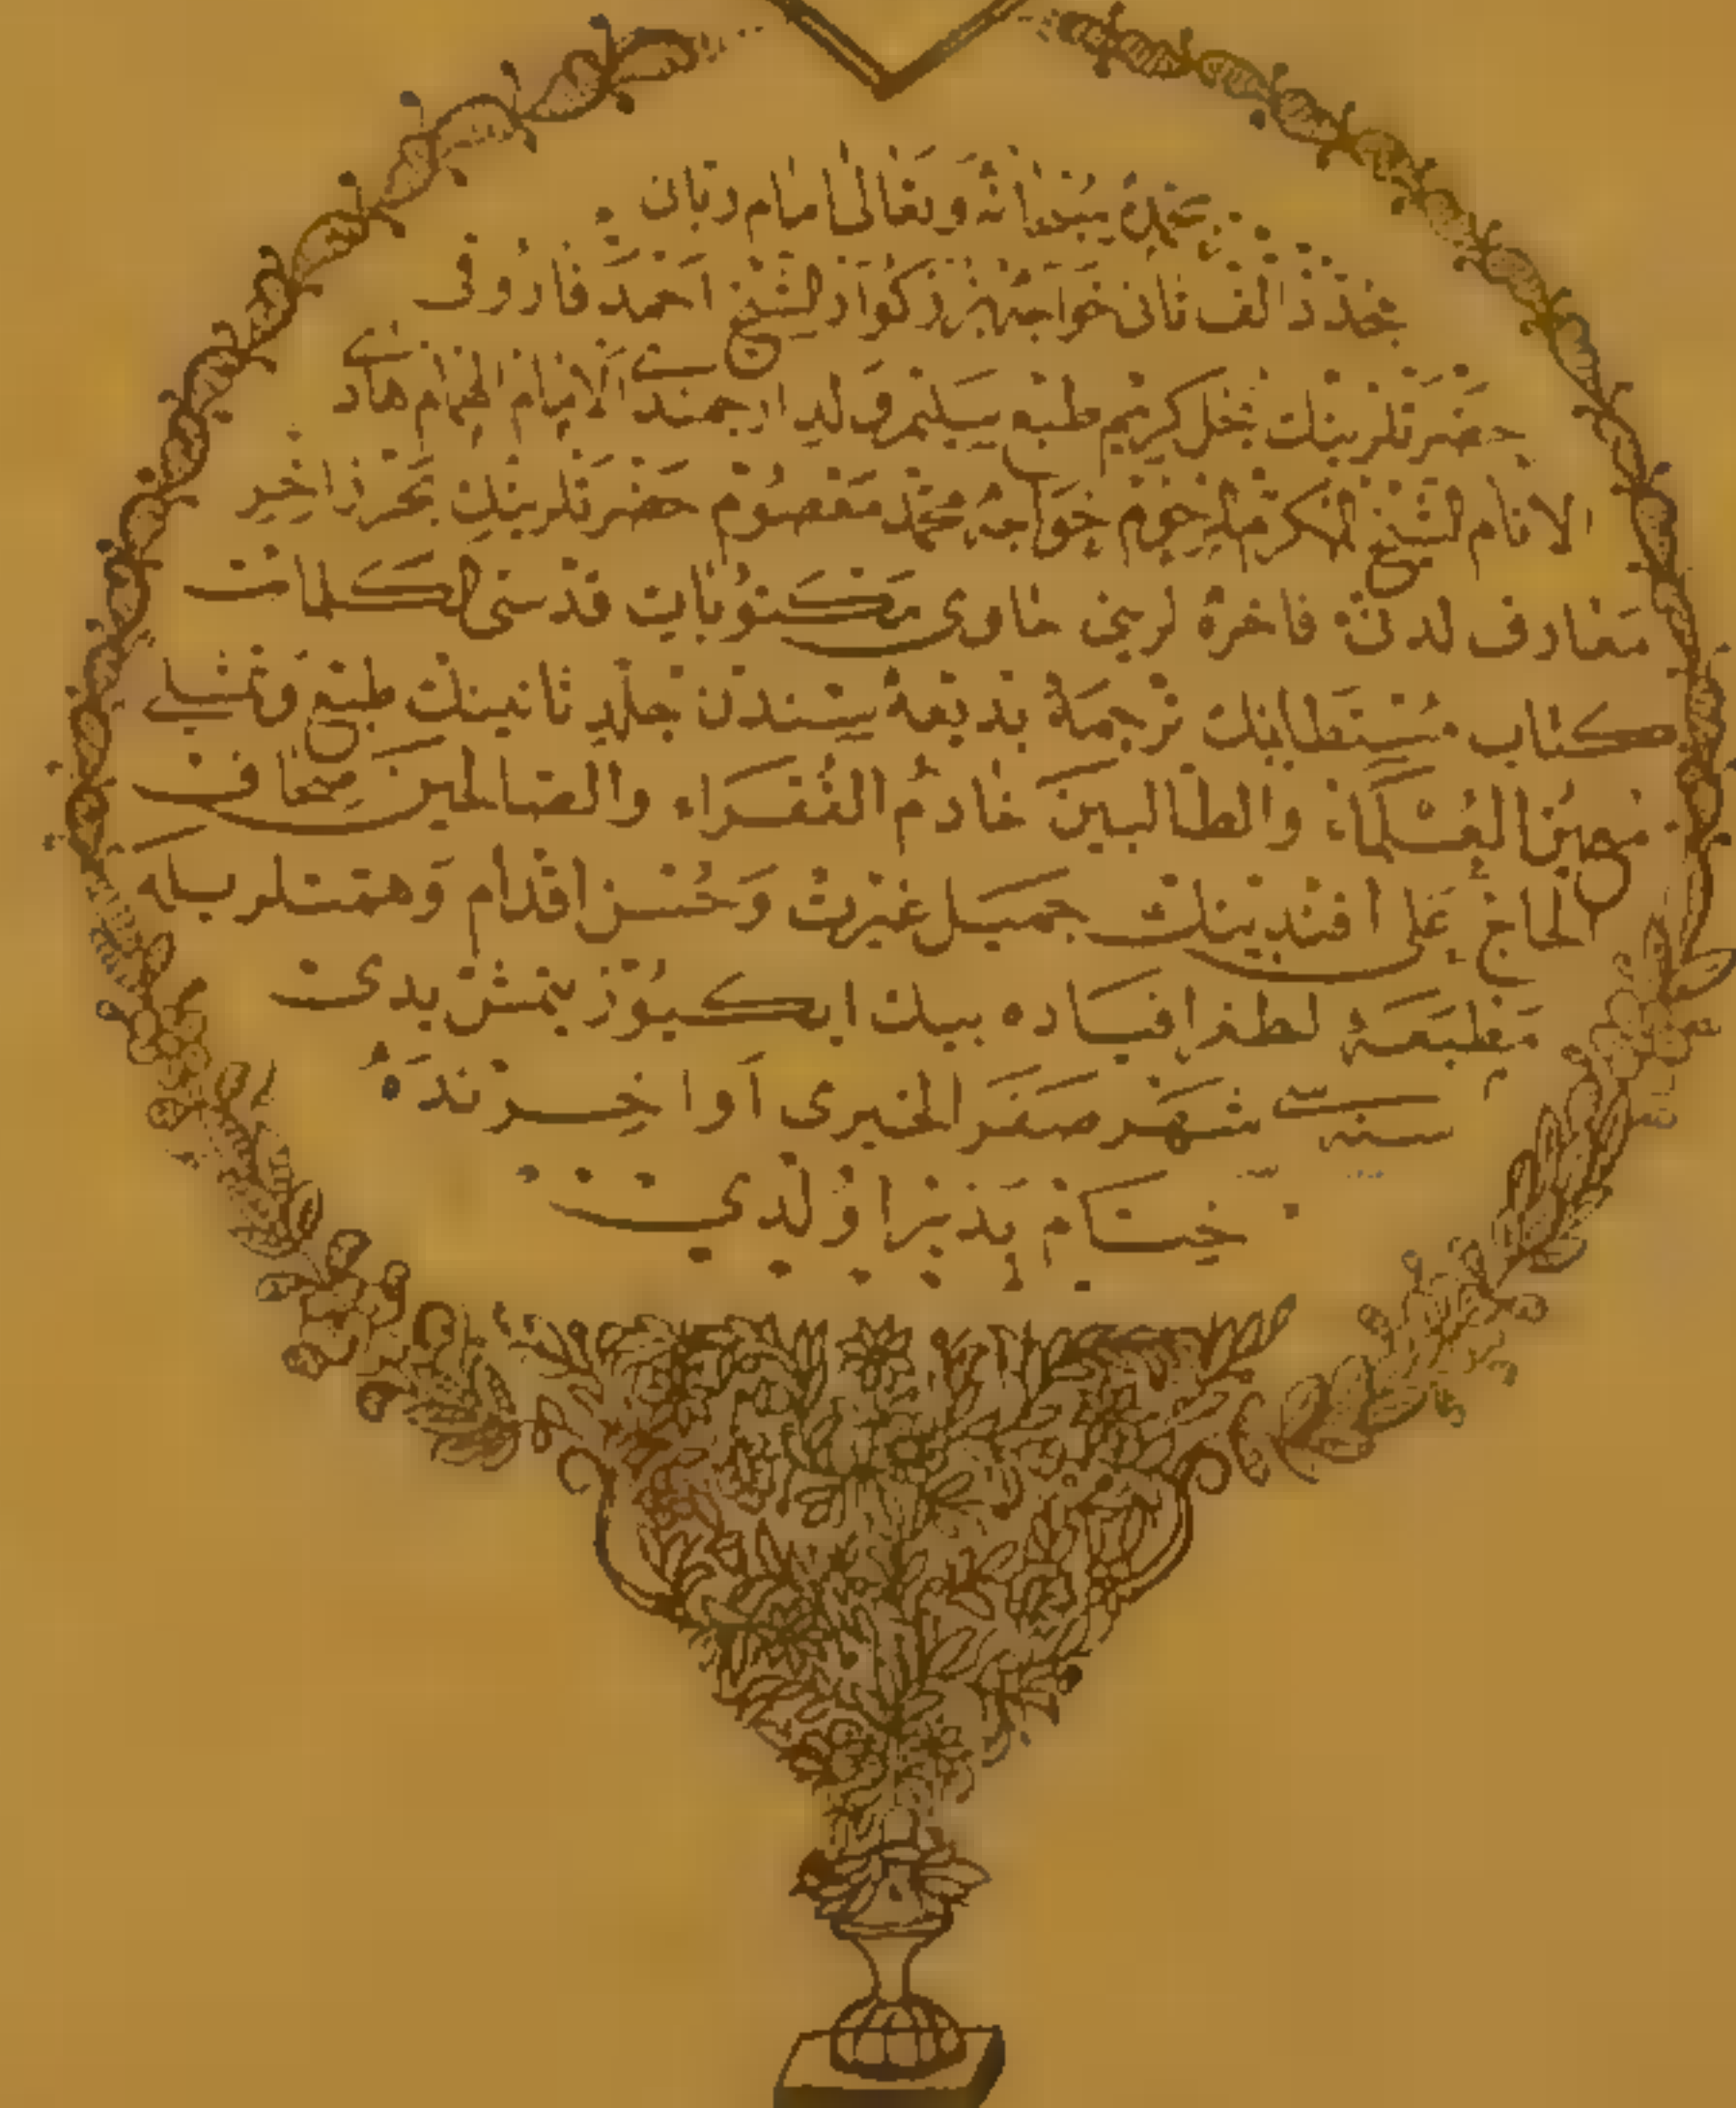 سبحانه وتعالى امام ربانى
مجدد الف ثانى خواجه بزركوار الشيخ احمد فاروقى
حضرتلرينك نجل كريم ولد ارجمندى الامام الهمام هادى
الانام الشيخ المكرم خواجه محمد معصوم حضرتلرينك بحر ذاخر
معارف لدنى فاخره لرينى حاوى مكتوبات قدسى كلمات
كتاب مستطابك ترجمۀ بديعه سندن جلد ثانينك طبع وتمثيلى
العلماء والطالبين خادم الفقراء والصالحين صحاف
الحاج على افندينك جميل غيرت وحسن اقدام وهمتلريله
مطبعه بيك ايكيوز يتمش يدى
سنه سى شهر صفر الخيرى اواخرنده
ختام پذير اولدى